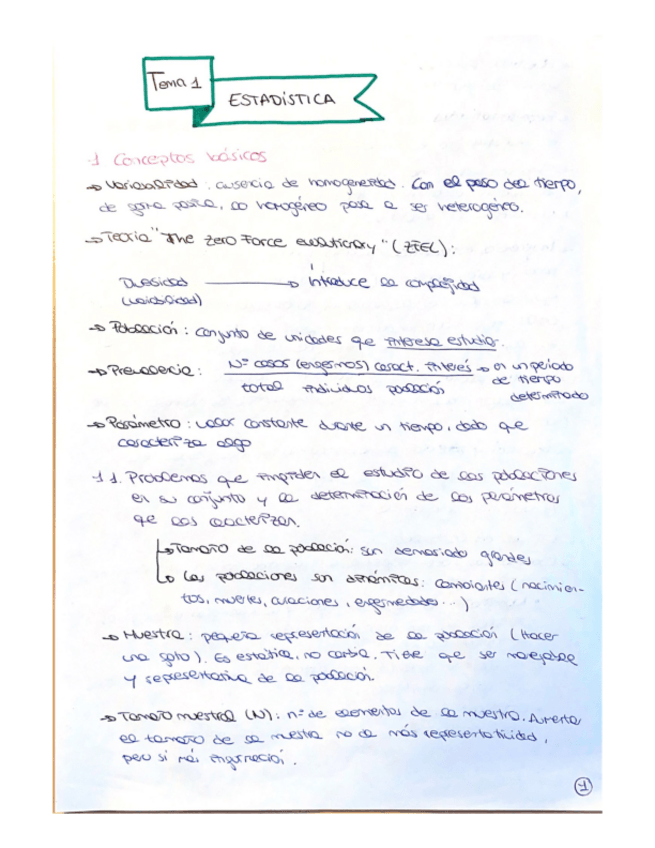 Tema 1
ESTADÍSTICA
1 Conceptos básicos
→ Variabilidad: ausencia de homogeneidad. Con el paso del tiempo,
de forma pasiva, lo homogéneo pasa a ser heterogéneo.
→ Teoría "The zero Force evolutionary" (ZFEL):
Diversidad → introduce la complejidad
(variabilidad)
→ Población: conjunto de unidades que interesa estudiar.
→ Prevalencia: Nº casos (enfermos) caract. interés → en un periodo
total individuos población de tiempo
determinado
→ Parámetro: valor constante durante un tiempo, dado que
caracteriza algo
1 1. Problemas que impiden el estudio de las poblaciones
en su conjunto y la determinación de los parámetros
que las caracterizan.
→ Tamaño de la población: son demasiado grandes
→ Las poblaciones son dinámicas: cambiantes (nacimien-
tos, muertes, curaciones, enfermedades...)
→ Muestra: pequeña representación de la población (Hacer
una foto). Es estática, no cambia. Tiene que ser manejable
y representativa de la población.
→ Tamaño muestral (N): nº de elementos de la muestra. Aumentar
el tamaño de la muestra no da más representatividad,
pero si más información.
1